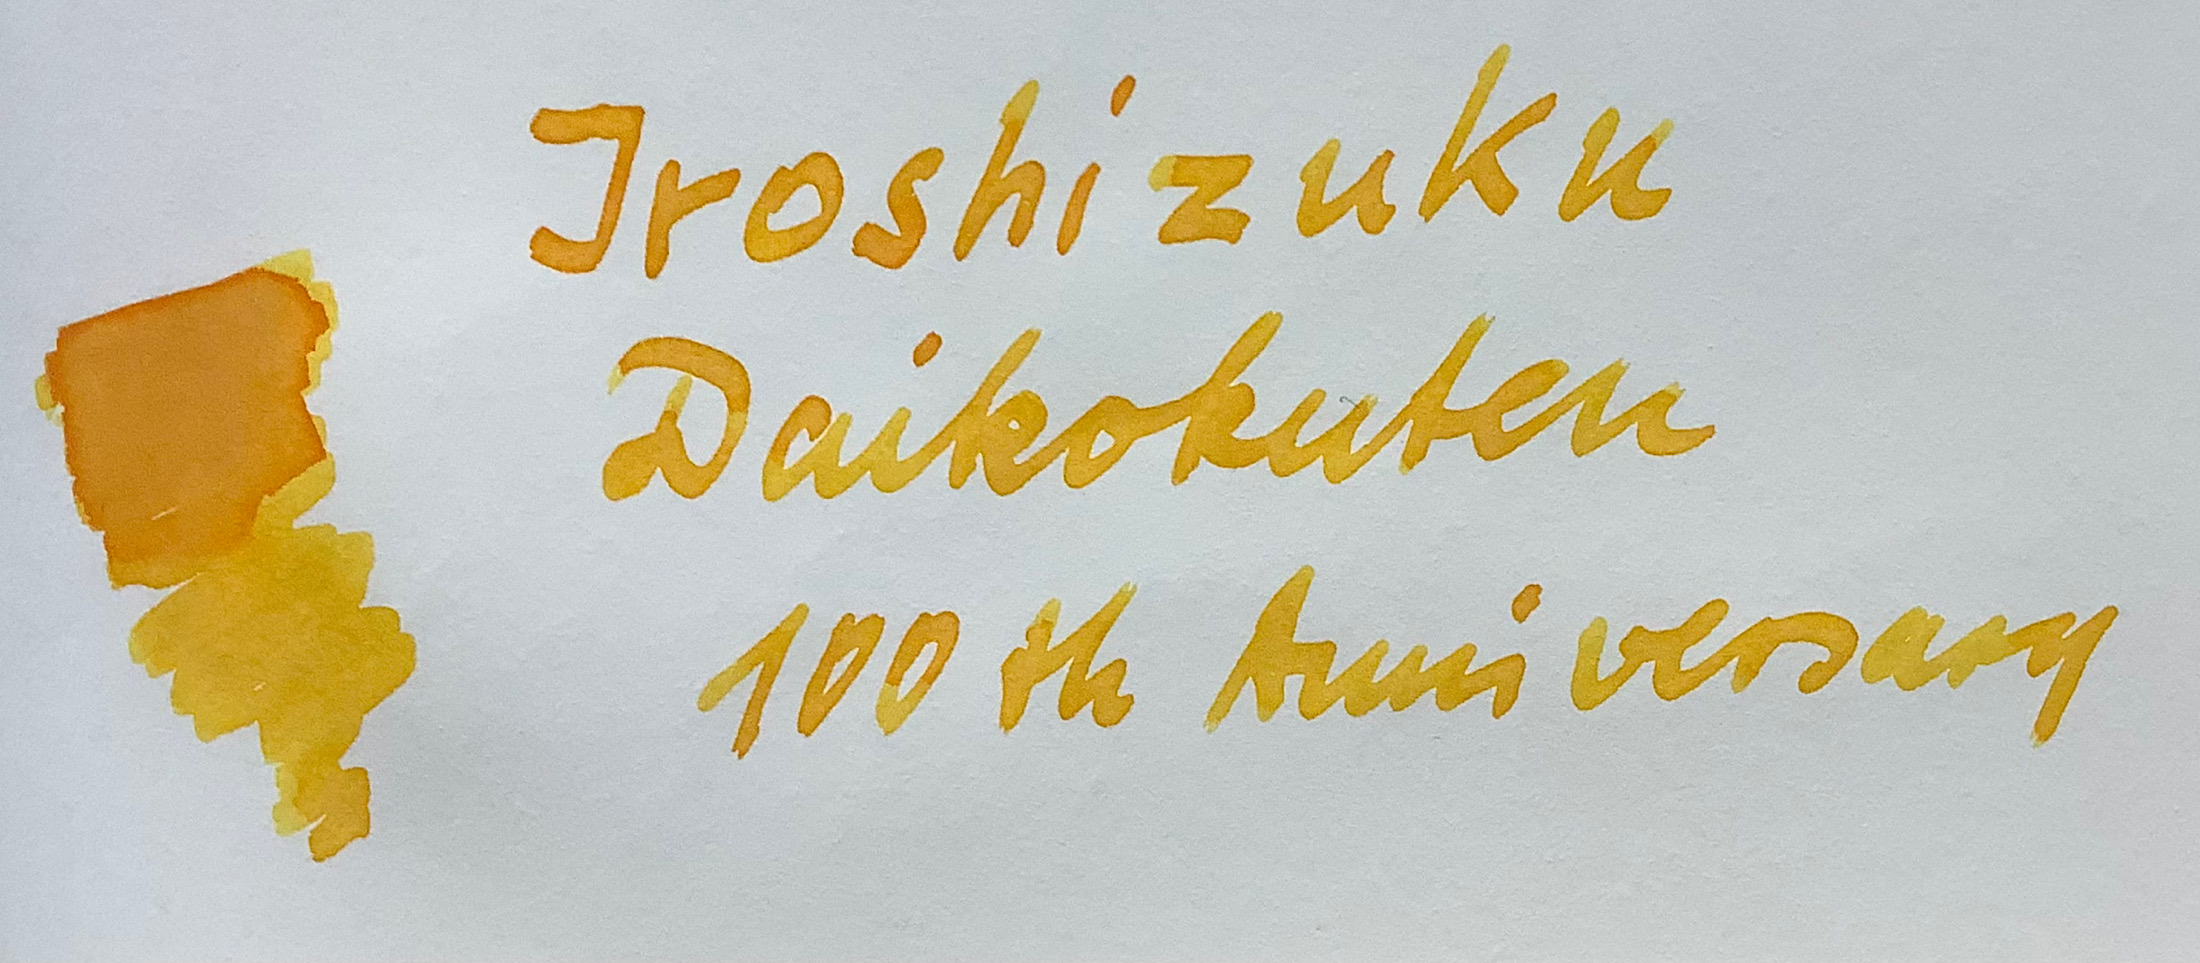 Iroshizuku
Daikokuten
100th Anniversary